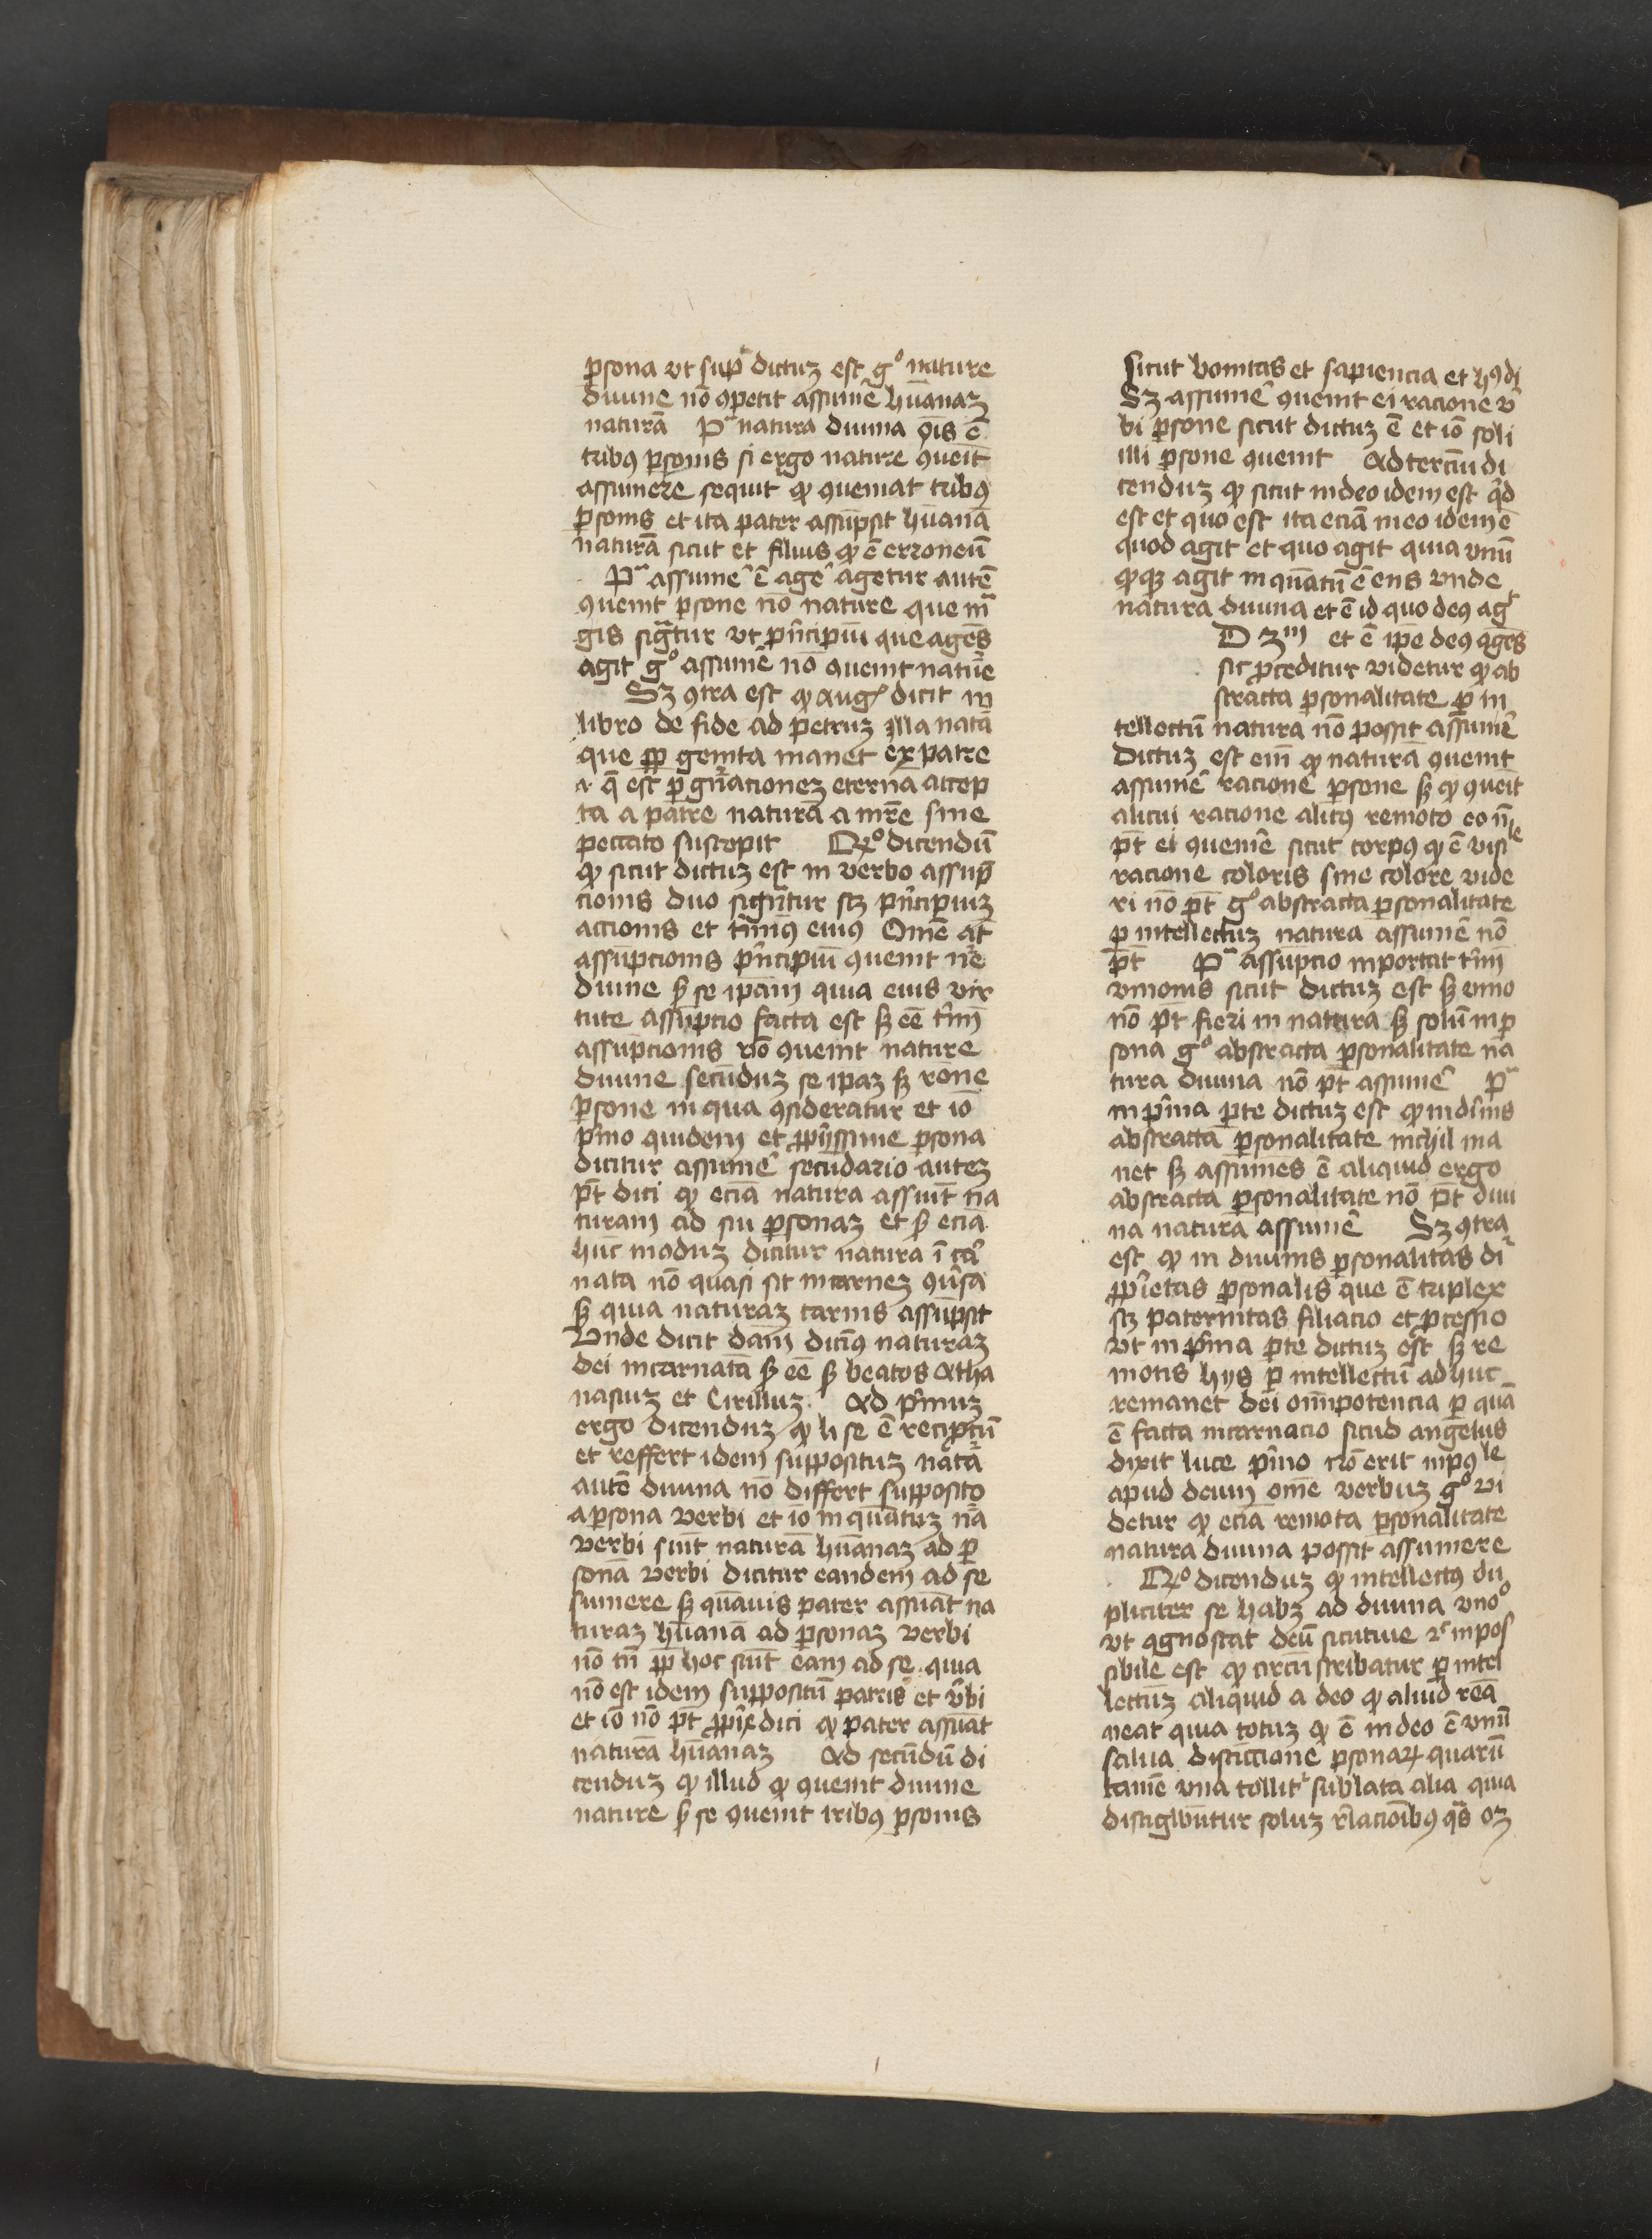 ꝑsona vt supᵃ dictuz est gͦ nature
diuine nō ꝯpetit assumē hūanaz
naturā Pᵃ natura diuina ōis ē
tribꝰ ꝑsonis si ergo nature ꝯueit
assumere sequit ꝙ ꝯueniat tribꝰ
ꝑsonis et ita pater assūpsit hūanā
naturā sicut et filius ꝙ ē erroneū
Pᵃ assumē ē agē agetur autē
ꝯuenit ꝑsone nō nature que mᵃ
gis sigᵃtur vt pⁱncipiū que agēs
agit gͦ assumē nō ꝯuenit natūe
Sz ꝯtra est ꝙ augꝰ dicit in
libro de fide ad petruz illa natā
que sꝑ genita manet ex patre
⁊ q̄ est ꝑ gn̄acionez eternā accep
ta a patre naturā a mr̄e sine
peccato suscepit Rͦ dicendū
ꝙ sicut dictuz est in verbo assūp
cionis duo sign̄tur scz pⁱncipiuz
accionis et t̄mīꝰ eiꝰ Om̄e at̄
assūpcionis pⁱncipiū ꝯuenit ne
diuine ẜ se ipam quia eius vir
tute assūpcio facta est ẜ eē t̄mī
assūpcionis nō ꝯuenit nature
diuine secūduz se ipaz ẜ rōne
ꝑsone in qua ꝯsideratur et iō
pⁱmo quidem et ꝓpⁱissime ꝑsona
dicitur assumē secūdario autez
pt̄ dici ꝙ eciā natura assuīt na
turam ad sui ꝑsonaz et ẜ eciā
hūc moduz dicitur natura ī cā
nata nō quasi sit in carnez ꝯūsa
ẜ quia naturaz carnis assūpsit
Vnde dicit dam̄ dicīꝰ naturaz
dei incarnatā ẜ eē ẜ beatos Atha
nasiuz et Cirilluz Ad pⁱmuz
ergo dicenduz ꝙ li se ē reciprocū
et reffert idem suppositū natā
autē diuina nō differt supposito
a ꝑsona verbi et iō in quātuz nā
verbi suīt naturā hūanaz ad ꝑ
sonā verbi dicitur eandem ad se
sumere ẜ quāuis pater assuāt na
turaz hūanā ad ꝑsonaz verbi
nō tn̄ ꝓp hoc suīt eam ad se quia
nō est idem suppositū patris et v̄bi
et iō nō pt̄ ꝓpⁱe dici ꝙ pater assuāt
naturā hūanaz Ad secūdū di
cenduz ꝙ illud ꝙ ꝯuenit diuine
nature ẜ se ꝯuenit tribꝰ ꝑsonis
sicut bonitas et sapiencia et hꝰdi
Sz assumē ꝯuenit ei racione v̄
bi ꝑsone sicut dictuz ē et iō soli
illi ꝑsone ꝯuenit Ad terciū di
cenduz ꝙ sicut in deo idem est qd
est et quo est ita eciā in eo idem ē
quod agit et quo agit quia vnū
quodqz agit in quātū ē ens vnde
natura diuina et ē id quo deꝰ agᵗ
D 3ᵐ et ē ipe deꝰ agēs
sic ꝓceditur videtur ꝙ ab
stracta ꝑsonalitate ꝑ in
tellectū natura nō possit assumē
Dictuz est em̄ ꝙ naturā ꝯuenit
assumē racione ꝑsone ẜ ꝙ ꝯueit
alicui racione alicꝰ remoto eo n̄
pt̄ ei ꝯuenīe sicut corpꝰ ꝙ ē visiˡᵉ
racione coloris sine colore vide
ri nō pt̄ gͦ abstracta ꝑsonalitate
ꝑ intellectuz natura assumē nō
pt̄ Pᵃ assūpcio inportat t̄mī
vnionis sicut dictuz est ẜ vnio
nō pt̄ fieri in natura ẜ solū in ꝑ
sona gͦ abstracta ꝑsonalitate na
tura diuina nō pt̄ assumē Pᵃ
in pⁱma ꝑte dictuz est ꝙ in diuīs
abstractā ꝑsonalitate nichil ma
net ẜ assumēs ē aliquid ergo
abstracta ꝑsonalitate nō pt̄ diui
na naturā assumē Sz ꝯtra
est ꝙ in diuinis ꝑsonalitas dr̄
ꝓpⁱetas ꝑsonalis que ē triplex
scz paternitas filiacio et ꝓcessio
vt in pⁱma ꝑte dictuz est ẜ re
motis hys ꝑ intellectū adhuc
remanet dei om̄ipotencia ꝑ quā
ē facta incarnacio sicud angelus
dixit luce pⁱmo nō erit inpoˡᵉ
apud deum om̄e verbuz gͦ vi
detur ꝙ eciā remota ꝑsonalitate
natura diuina possit assumere
Rͦ dicenduz ꝙ intellectꝰ du
pliciter se habz ad diuina vnoͦ
vt ꝯgnoscat deū sicutiue ⁊ inpos
sibile est ꝙ circūscribatur ꝑ intel
lectūz aliquid a deo ꝙ aliud rēa
neat quia totuz ꝙ ē in deo ē vnū
salua distīccione ꝑsonaꝝ quarū
tamē vna tollitʳ sublata alia quia
distīgwūtur soluz rl̄acionibꝰ qᵃs oz